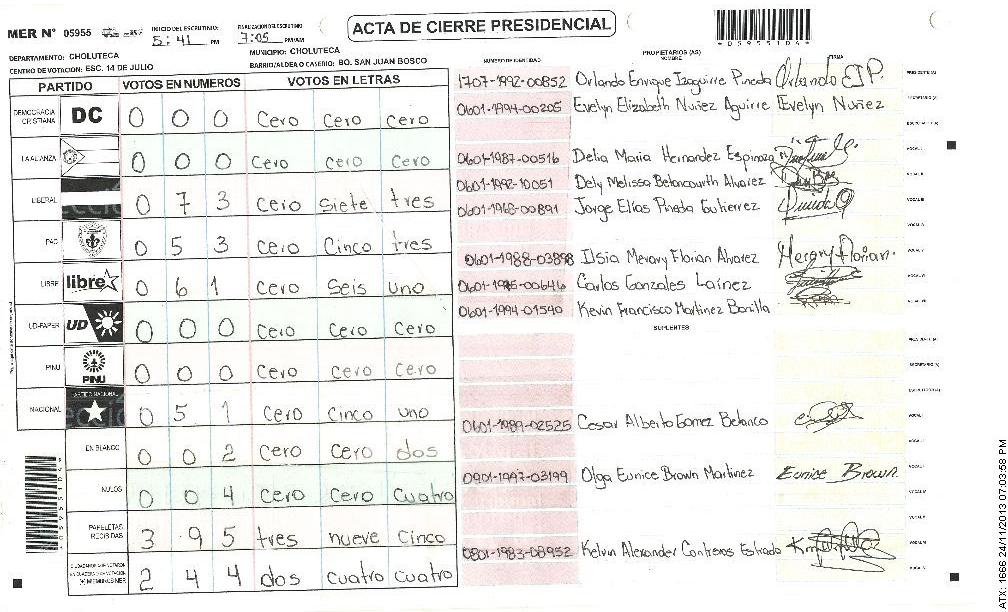 MER N° 05955 INICIO DEL ESCRUTINIO 5:41 PM FINALIZACION DEL ESCRUTINIO 7:05 PM/AM
ACTA DE CIERRE PRESIDENCIAL
*05955104*
DEPARTAMENTO: CHOLUTECA MUNICIPIO: CHOLUTECA
CENTRO DE VOTACION: ESC. 14 DE JULIO BARRIO/ALDEA O CASERIO: BO. SAN JUAN BOSCO
PARTIDO VOTOS EN NUMEROS VOTOS EN LETRAS
DEMOCRACIA CRISTIANA DC 0 0 0 Cero Cero Cero
LA ALIANZA 0 0 0 Cero Cero Cero
LIBERAL 0 7 3 Cero Siete tres
PAC 0 5 3 Cero Cinco tres
LIBRE libre 0 6 1 Cero Seis uno
UD-FAPER UD 0 0 0 Cero Cero Cero
PINU PINU 0 0 0 Cero Cero Cero
NACIONAL PARTIDO NACIONAL 0 5 1 Cero Cinco uno
EN BLANCO 0 0 2 Cero Cero dos
NULOS 0 0 4 Cero Cero Cuatro
PAPELETAS RECIBIDAS 3 9 5 tres nueve Cinco
2 4 4 dos Cuatro Cuatro
NUMERO DE IDENTIDAD PROPIETARIOS (AS) NOMBRE FIRMA
1707-1992-00852 Orlando Enrique Izaguirre Pineda Orlando EIP. PRESIDENTE (A)
0601-1994-00205 Evelyn Elizabeth Nuñez Aguirre Evelyn Nuñez SECRETARIO (A)
ESCRUTADOR (A)
0601-1987-00516 Delia Maria Hernandez Espinoza VOCAL I
0601-1992-10051 Dely Melissa Betancourth Alvarez
0601-1968-00891 Jorge Elías Pineda Gutierrez
0601-1988-03898 Ilsia Meravy Florian Alvarez
Carlos Gonzales Laínez
0601-1994-01590 Kevin Francisco Martinez Bonilla
SUPLENTES
0601-1989-02525 Cesar Alberto Gomez Betanco
0901-1997-03199 Olga Eunice Brown Martinez Eunice Brown
0801-1983-08952 Kelvin Alexander Contreras Estrada
ATX: 1666 24/11/2013 07:03:58 PM